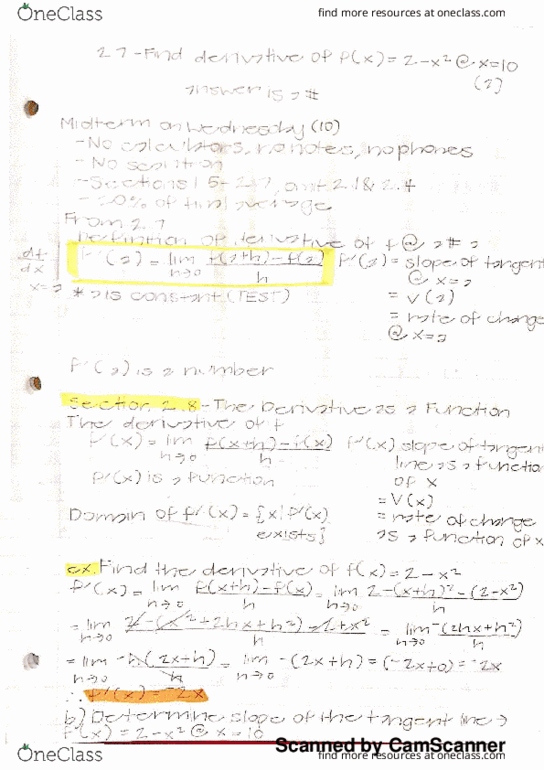 OneClass
find more resources at oneclass.com
2.7 - Find derivative of f(x) = 2-x² @ x=10
(a)
answer is a #
Midterm on Wednesday (10)
- No calculators, no notes, no phones
- No
- Sections 1.5-2.7, 2.1 & 2.4
- 20% of final average
From 2.7
Definition of derivative of f @ a # a
df/dx x=a f'(a) = lim h→0 f(a+h)-f(a)/h f'(a) = slope of tangent
@ x=a
* a is constant (TEST) = v(a)
= rate of change
@ x=a
f'(a) is a number
Section 2.8 - The Derivative as a Function
The derivative of f
f'(x) = lim h→0 f(x+h)-f(x)/h f'(x) slope of tangent
line as a function
f'(x) is a function of x
= V(x)
Domain of f'(x) = {x| f'(x) = rate of change
exists} as a function of x
ex. Find the derivative of f(x) = 2-x²
f'(x) = lim h→0 f(x+h)-f(x)/h = lim h→0 2-(x+h)²-(2-x²)/h
= lim h→0 2-(x²+2hx+h²)-2+x²/h = lim h→0 -(2hx+h²)/h
= lim h→0 -h(2x+h)/h = lim h→0 -(2x+h) = (-2x+0) = -2x
∴ f'(x) = -2x
b) Determine slope of the tangent line →
f'(x) = 2-x² @ x=10
Scanned by CamScanner
OneClass
find more resources at oneclass.com